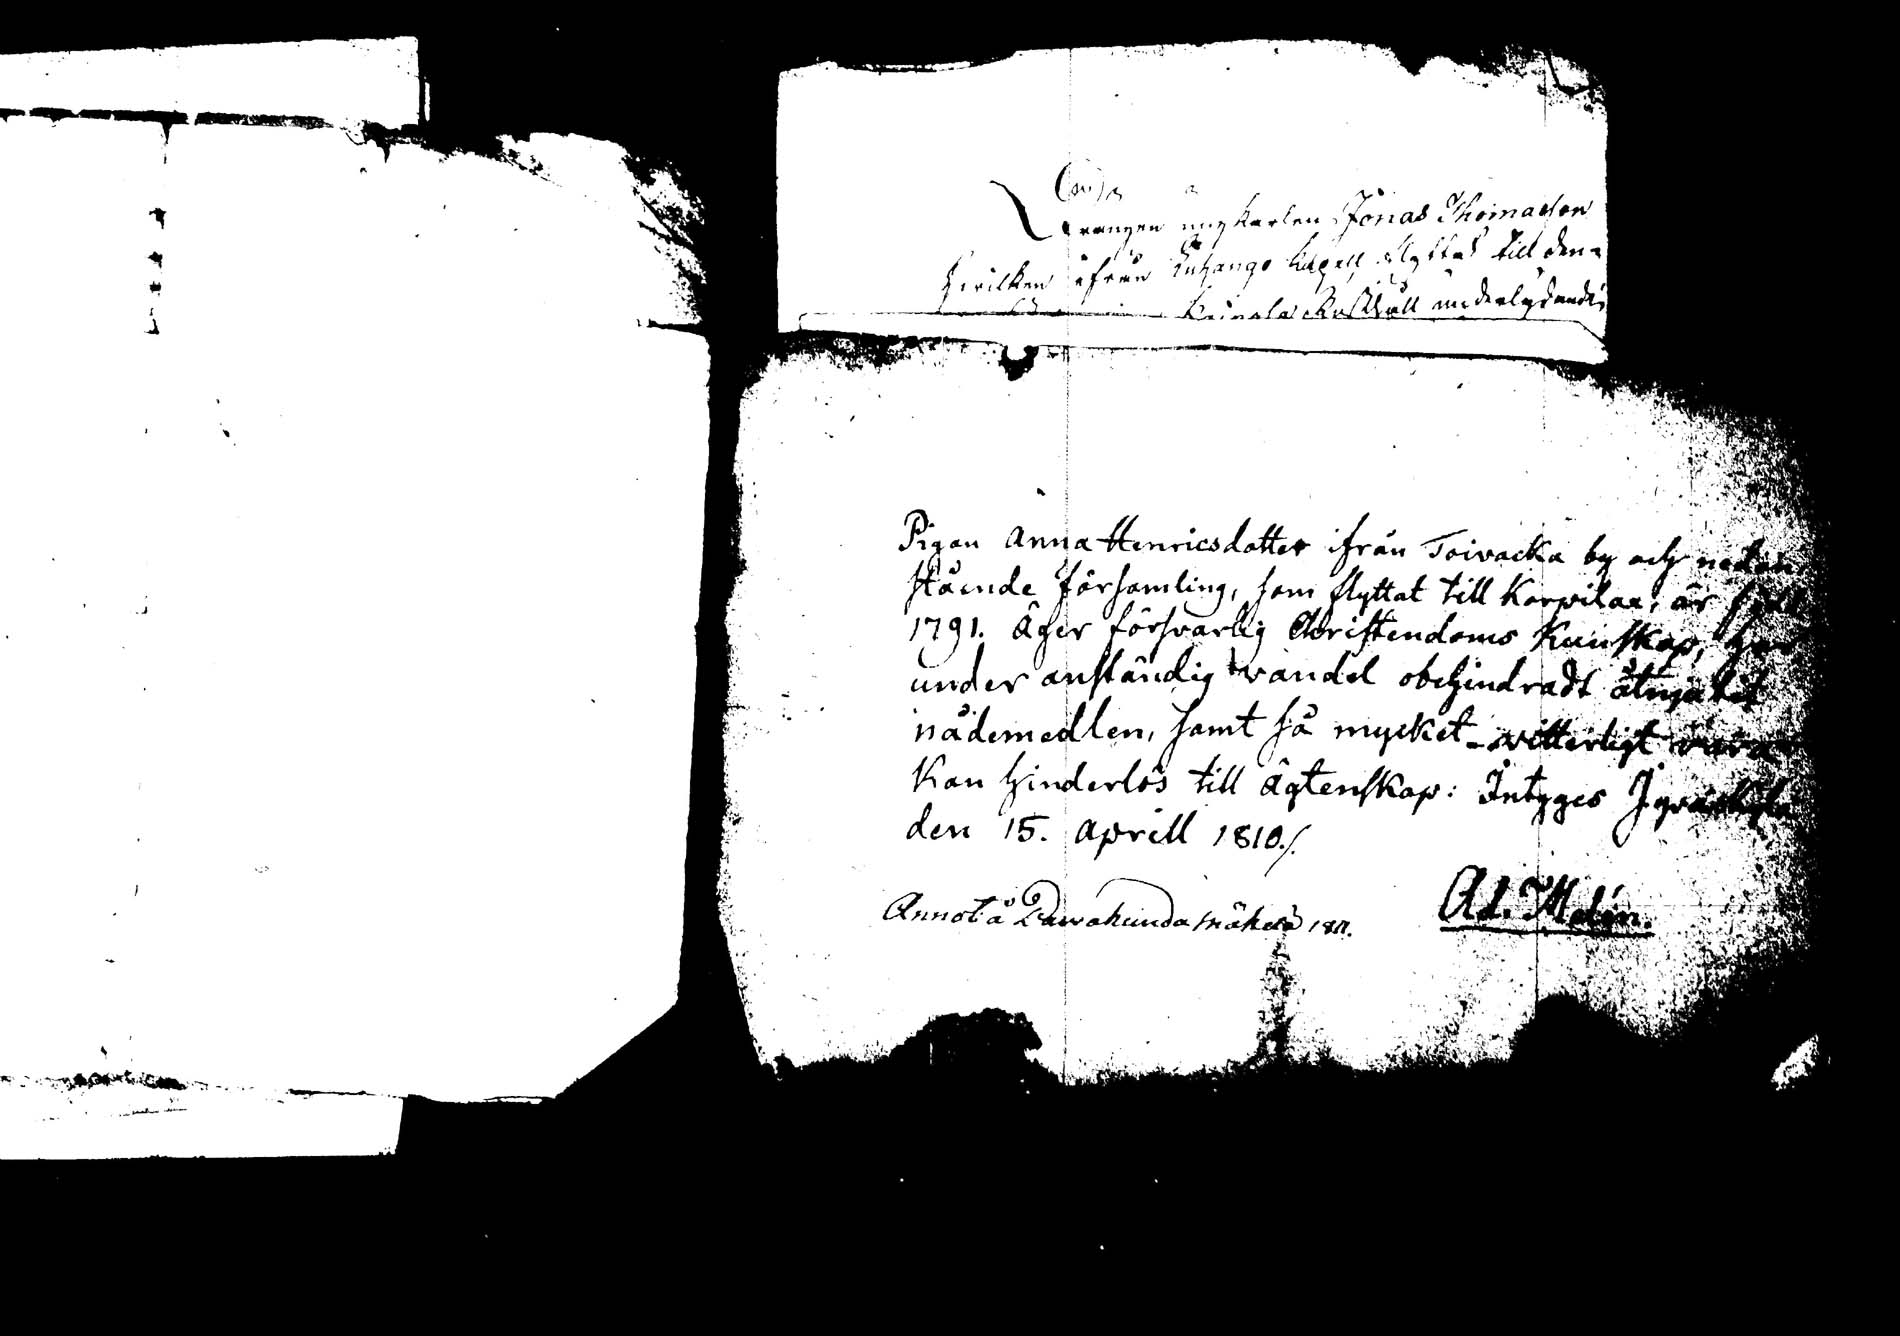 Drängen ungkarlen Jonas Thomasson
hvilken ifrån Kuhango Capell flyttat till den-
underlydande
Pigan Anna Henricsdotter ifrån Toivacka by och nedan
stående församling, som flyttat till Korpilax, är född
1791. Äger försvarlig Christendoms Kunskap, har
under anständig vandel obehindradt åtnjutit
nådemedlen, samt så mycket vitterligt vara
Kan hinderlös till Ägtenskap: Intyges Jyväskylä
den 15. Aprill 1810./.
Annot. å
Ad. Melén.